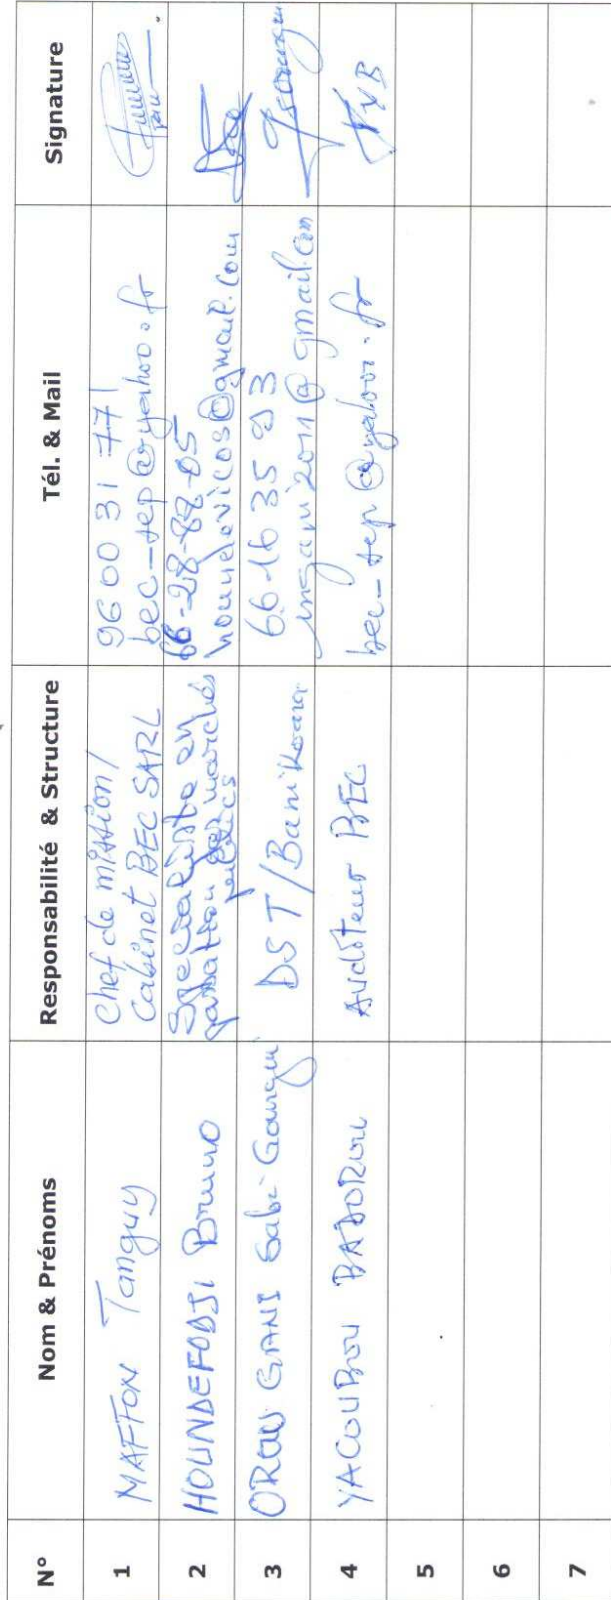 N° Nom & Prénoms Responsabilité & Structure Tél. & Mail Signature
1 MAFFON Tanguy Chef de mission / Cabinet BEC SARL 96 00 31 77 bec-sep@yahoo.fr
2 HOUNDEFODJI Bruno Spécialiste en passation des marchés publics 66-28-88-05 @gmail.com
3 OROU GANI Sabi Gounou DST / Banikoara 66 16 35 93 ingani2011@gmail.com
4 YACOUBOU BADOROU Auditeur BEC bec-sep@yahoo.fr NYB
5
6
7